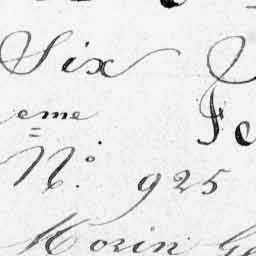 Six
eme Fe
N.º 925
Morin Ge